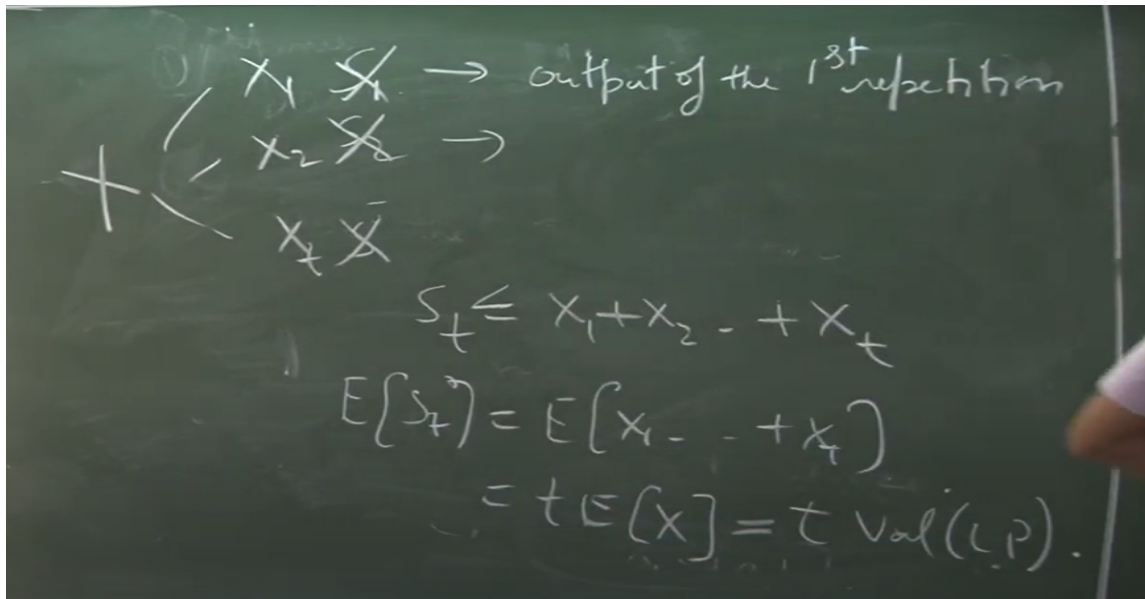 X₁ S₁ → output of the 1st repetition
X₂ S₂ →
X_t
S_t ≤ X₁ + X₂ - + X_t
E[S_t] = E[X₁ - - + X_t]
= t E[X] = t val(LP).